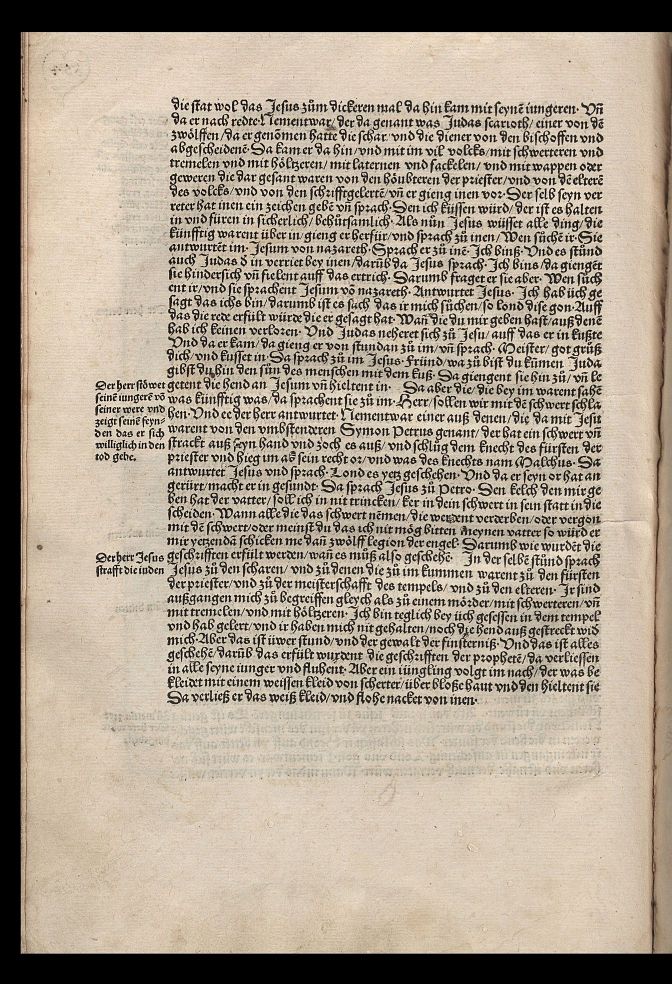 die stat wol das Jesus zům dickeren mal da hin kam mit seynē iungeren· Vñ
da er nach redte· Nementwar/ der da genant was Judas scarioth/ einer von dē
zwölffen/ da er genōmen hatte die schar/ vnd die diener von den bischoffen vnd
abgescheidenē· Da kam er da hin/ vnd mit im vil volcks/ mit schwerteren vnd
tremelen vnd mit höltzeren/ mit laternen vnd fackelen/ vnd mit wappen oder
geweren die dar gesant waren von den höubteren der priester/ vnd von dē elterē
des volcks/ vnd von den schrifftgelertē/ vñ er gieng inen vor· Der selb seyn ver
reter hat inen ein zeichen gebē vñ sprach· Den ich küssen würd/ der ist es halten
in vnd füren in sicherlich/ behůtsamlich· Als nūn Jesus wüsset alle ding/ die
künfftig warent über in/ gieng er herfür/ vnd sprach zů inen/ Wen sůchē ir· Sie
antwurtēt im· Jesum von nazareth· Sprach er zů inē· Ich binß· Vnd es stůnd
auch Judas d̄ in verriet bey inen/ darūb da Jesus sprach· Ich bins/ da giengēt
sie hindersich vñ fielent auff das ertrich· Darumb fraget er sie aber· Wen sůch
ent ir/ vnd sie sprachent Jesum vō nazareth· Antwurtet Jesus· Ich hab üch ge
sagt das ichs bin/ darumb ist es sach das ir mich sůchen/ so lond dise gon· Auff
das die rede erfült würde die er gesagt hat· Wañ die du mir geben hast/ auß denē
hab ich keinen verloren· Vnd Judas neheret sich zů Jesu/ auff das er in kußte
Vnd da er kam/ da gieng er von stundan zů im/ vñ sprach· Meister/ got grüß
dich/ vnd kusset in· Da sprach zů im Jesus· Fründ/ wa zů bist du kūmen Juda
gibst du hin den sun des menschen mit dem kuß· Da giengent sie hin zů/ vñ le
getent die hend an Jesum vñ hieltent in· Da aber die/ die bey im warent sahē
was künfftig was/ da sprachent sie zů im· Herr/ sollen wir mit dē schwert schla
hen· Vnd er der herr antwurtet· Nementwar einer auß denen/ die da mit Jesu
warent von den vmbstenderen Symon Petrus genant/ der hat ein schwert vñ
strackt auß seyn hand vnd zoch es auß/ vnd schlůg dem knecht des fürsten der
priester vnd hieg im ab sein recht or/ vnd was des knechts nam Malchus· Da
antwurtet Jesus vnd sprach· Lond es yetz geschehen· Vnd da er seyn or hat an
gerürt/ macht er in gesundt· Da sprach Jesus zů Petro· Den kelch den mir ge
ben hat der vatter/ soll ich in nit trincken/ ker in dein schwert in sein statt in die
scheiden· Wann alle die das schwert nēmen/ die werdent verderben/ oder vergon
mit dē schwert/ oder meinst du das ich nit mög bitten meynen vatter so würd er
mir yetzendā schicken me dañ zwölff legion der engel· Darumb wie wurdēt die
geschrifften erfült werden/ wañ es můß also geschehē· In der selbē stůnd sprach
Jesus zů den scharen/ vnd zů denen die zů im kummen warent zů den fürsten
der priester/ vnd zů der meisterschafft des tempels/ vnd zů den elteren· Ir sind
außgangen mich zů begreiffen gleych als zů einem mörder/ mit schwerteren/ vñ
mit tremelen/ vnd mit höltzeren· Ich bin teglich bey üch gesessen in dem tempel
vnd hab gelert/ vnd ir haben mich nit gehalten/ noch die hend auß gestreckt wid
mich· Aber das ist üwer stund/ vnd der gewalt der finsterniß· Vnd das ist alles
geschehē/ darūb das erfült wurdent die geschrifften der prophetē/ da verliessen
in alle seyne iunger vnd fluhent· Aber ein iüngling volgt im nach/ der was be
kleidet mit einem weissen kleid von scherter/ über bloße haut vnd den hieltent sie
Da verließ er das weiß kleid/ vnd flohe nacket von inen·
Der herr stöwet
seinē iungerē vō
seiner were vnd
zeigt seinē feyn-
den das er sich
williglich in den
tod gebe.
Der herr Jesus
strafft die iuden